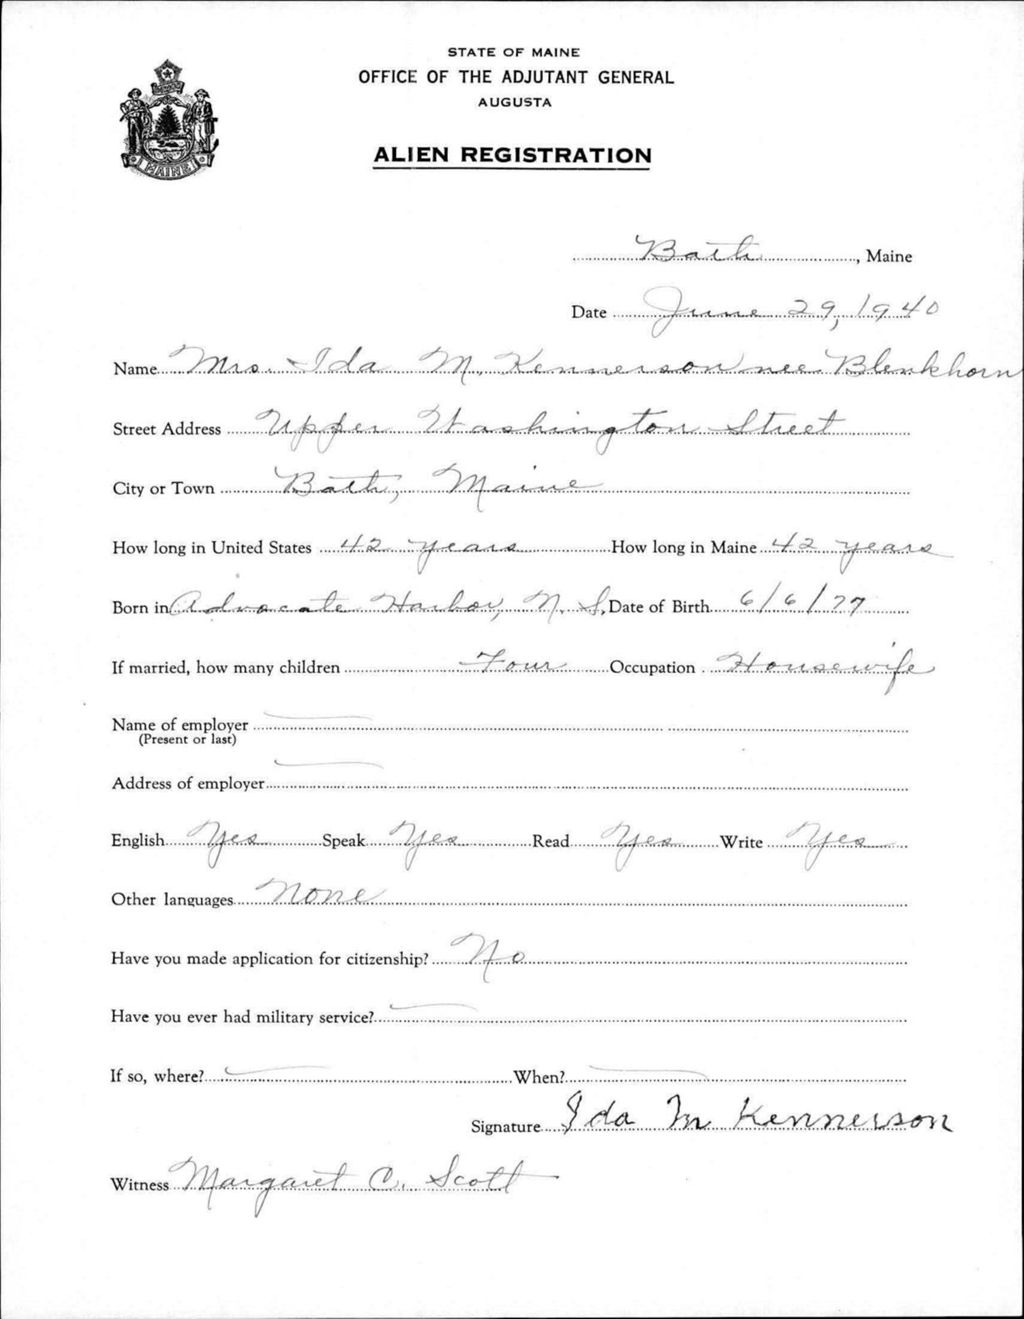 STATE OF MAINE
OFFICE OF THE ADJUTANT GENERAL
AUGUSTA
ALIEN REGISTRATION
MAINE
Bath, Maine
Date June 29, 1940
Name Mrs. Ida M. Kennerson nee Blenkhorn
Street Address Upper Washington Street
City or Town Bath, Maine
How long in United States 42 years How long in Maine 42 years
Born in Advocate Harbor, N. S. Date of Birth 6/6/77
If married, how many children Four Occupation Housewife
Name of employer
(Present or last)
Address of employer
English Yes Speak Yes Read Yes Write Yes
Other languages None
Have you made application for citizenship? No
Have you ever had military service?
If so, where? When?
Signature Ida M Kennerson
Witness Margaret C. Scott